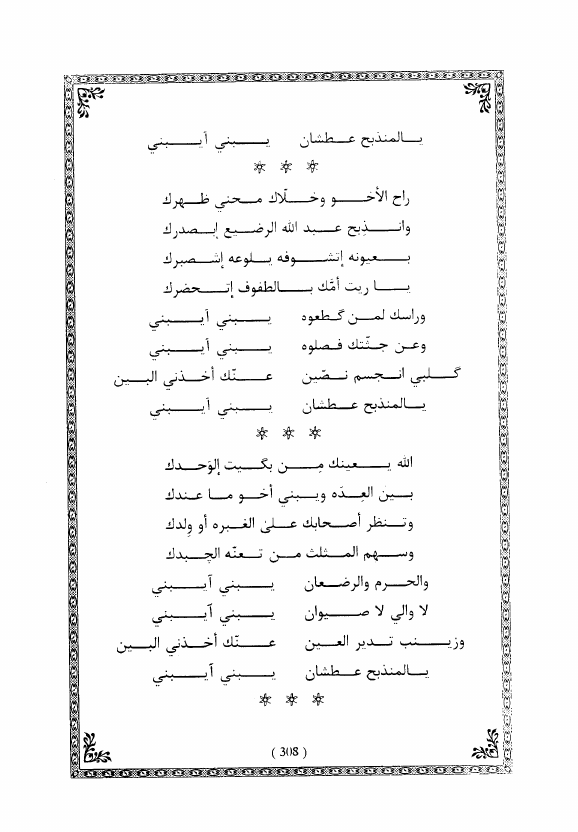 يالمنذبح عطشان يبني آيبني
* * *
راح الأخو وخلّاك محني ظهرك
وانذِبح عبد الله الرضيع إبصدرك
بعيونه إتشوفه يلوعه إشصبرك
يا ريت أمّك بالطفوف إتحضرك
وراسك لمن گطعوه يبني آيبني
وعن جثّتك فصلوه يبني آيبني
گلبي انجسم نصّين عنّك أخذني البين
يالمنذبح عطشان يبني آيبني
* * *
الله يعينك مِن بگيت إلوَحدك
بين العِدَه ويبني أخو ما عندك
وتنظر أصحابك على الغبره أو وِلدك
وسهم المثلث من تعنّه الچبدك
والحرم والرضعان يبني آيبني
لا والي لا صيوان يبني آيبني
وزينب تدير العين عنّك أخذني البين
يالمنذبح عطشان يبني آيبني
* * *
( 308 )